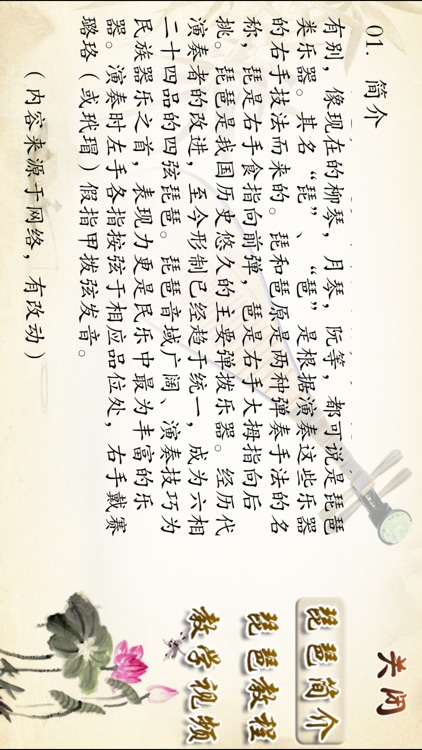 01. 简介
有别，像现在的柳琴，月琴，阮等，都可说是琵琶
类乐器。其名“琵”、“琶”是根据演奏这些乐器
的右手技法而来的。琵和琶原是两种弹奏手法的名
称，琵是右手食指向前弹，琶是右手大拇指向后
挑。琵琶是我国历史悠久的主要弹拨乐器。经历代
演奏者的改进，至今形制已经趋于统一，成为六相
二十四品的四弦琵琶。琵琶音域广阔、演奏技巧为
民族器乐之首，表现力更是民乐中最为丰富的乐
器。演奏时左手各指按弦于相应品位处，右手戴赛
璐珞（或玳瑁）假指甲拨弦发音。
（内容来源于网络，有改动）
关闭
琵琶简介
琵琶教程
教学视频